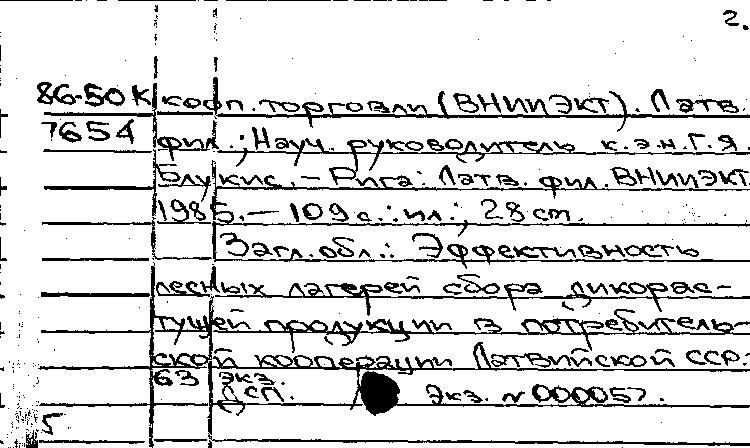 2.
86-50К кооп. торговли (ВНИИЭКТ). Латв.
7654 фил.; Науч. руководитель к.э.н. Г.Я.
Блукис. – Рига: Латв. фил. ВНИИЭКТ
1985. – 109 с.: ил.; 28 cm.
Загл. обл.: Эффективность
лесных лагерей сбора дикорас-
тущей продукции в потребитель-
ской кооперации Латвийской ССР.
63 экз.
ДСП. Экз. № 000057.
5